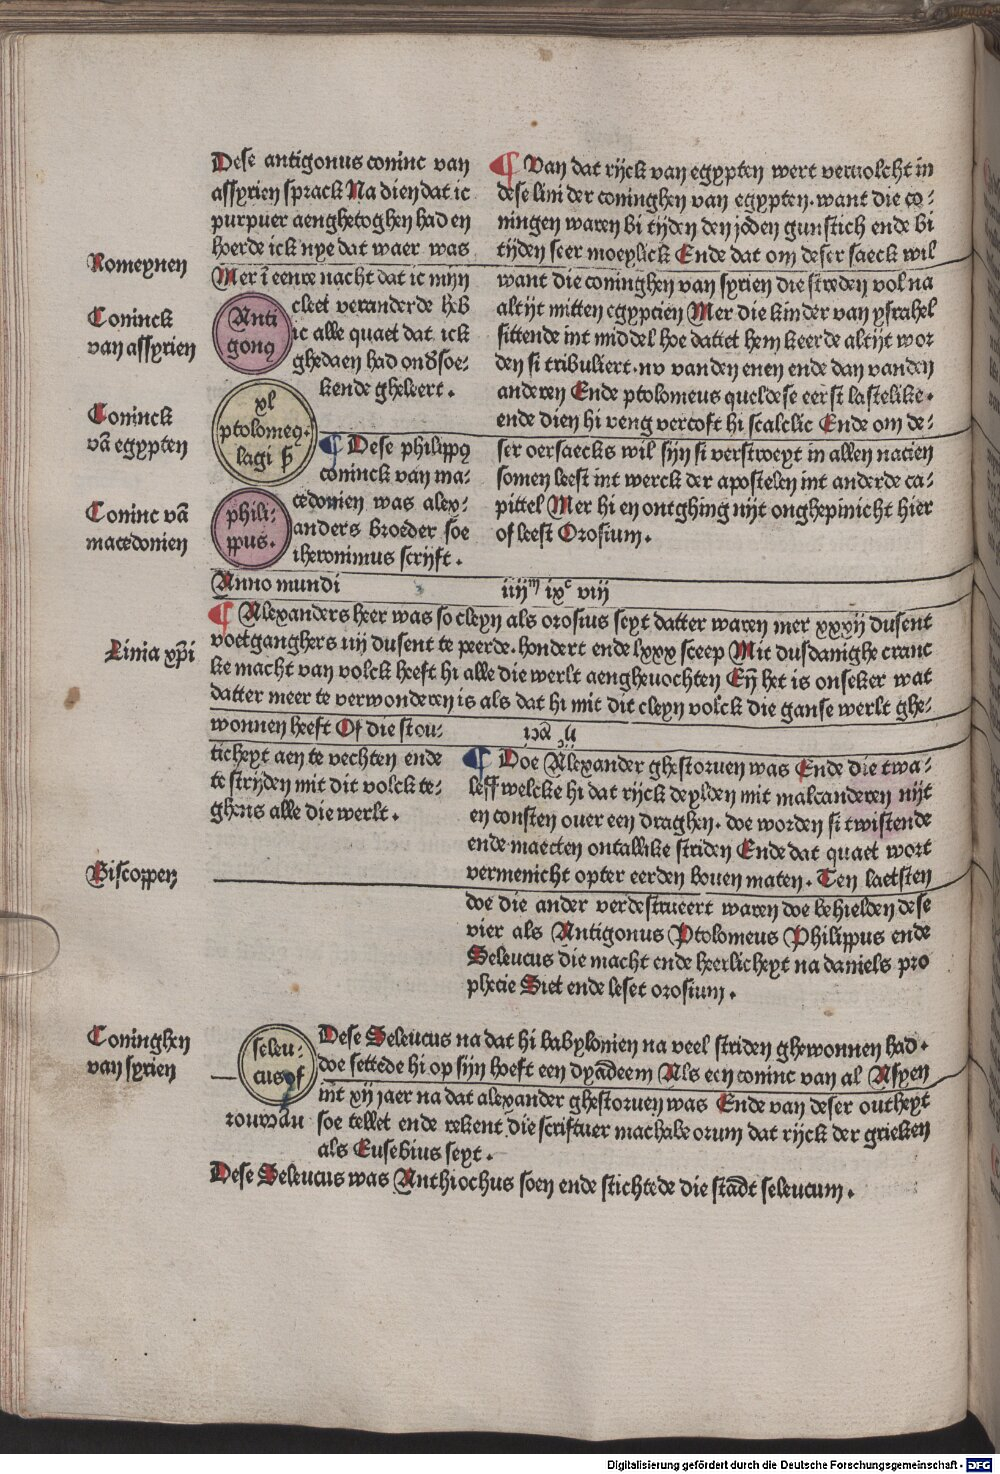 Dese antigonus coninc van
assyrien sprack Na dien dat ic
purpuer aenghetoghen had en
hoerde ick nye dat waer was
Mer ī eenre nacht dat ic mijn
cleet veranderde heb
ic alle quaet dat ick
ghedaen had ondsoe-
kende gheleert.
Romeynen
Coninck
van assyrien
Anti
gonꝰ
Coninck
vā egypten
xl
ptolomeꝰ.
lagi
¶ Dese philippꝰ
coninck van ma-
cedonien was alex-
anders broeder soe
iheronimus scrijft.
Coninc vā
macedonien
phili-
ppus.
¶ Van dat rijck van egypten wert veruolcht in
dese lini der coninghen van egypten. want die co-
ningen waren bi tijden den joden gunstich ende bi
tijden seer moeylick Ende dat om deser saeck wil
want die coninghen van syrien die streden vol na
altijt mitten egyptien Mer die kinder van ysrahel
sittende int middel hoe dattet hem keerde altijt wor
den si tribuliert. nv vanden enen ende dan vanden
anderen Ende ptolomeus queldese eerst lastelike.
ende dien hi veng vercoft hi scalclic Ende om de-
ser oersaecks wil sijn si verstroeyt in allen nacien
somen leest int werck der apostelen int anderde ca-
pittel Mer hi en ontghing nijt onghepinicht hier
of leest Orosium.
Anno mundi iiijᵐ ixᶜ viij
¶ Alexanders heer was so cleyn als orosius seyt datter waren mer xxxij dusent
voetganghers iiij dusent te peerde. hondert ende lxxx sceep Mit dusdanighe cranc
ke macht van volck heeft hi alle die werlt aengheuochten Eñ het is onseker wat
datter meer te verwonderen is als dat hi mit dit cleyn volck die ganse werlt ghe-
wonnen heeft Of die stou-
ticheyt aen te vechten ende
te strijden mit dit volck te-
ghens alle die werlt.
Linia xp̄i
¶ Doe Alexander ghestoruen was Ende die twa-
leff welcke hi dat rijck deylden mit malcanderen nijt
en consten ouer een draghen. doe worden si twistende
ende maecten ontallike striden Ende dat quaet wort
vermenicht opter eerden bouen maten. Ten laetsten
doe die ander verdestrueert waren doe behielden dese
vier als Antigonus Ptolomeus Philippus ende
Seleucus die macht ende heerlicheyt na daniels pro
phecie Siet ende leset orosium.
Biscoppen
Coninghen
van syrien
seleu-
cus
Dese Seleucus na dat hi babylonien na veel striden ghewonnen had.
doe settede hi op sijn hoeft een dyadeem Als een coninc van al Asyen
int xij jaer na dat alexander ghestoruen was Ende van deser outheyt
soe tellet ende rekent die scriftuer machabeorum dat rijck der grieken
als Eusebius seyt.
Dese Seleucus was Anthiochus soen ende stichtede die stadt seleucum.
Digitalisierung gefördert durch die Deutsche Forschungsgemeinschaft - DFG